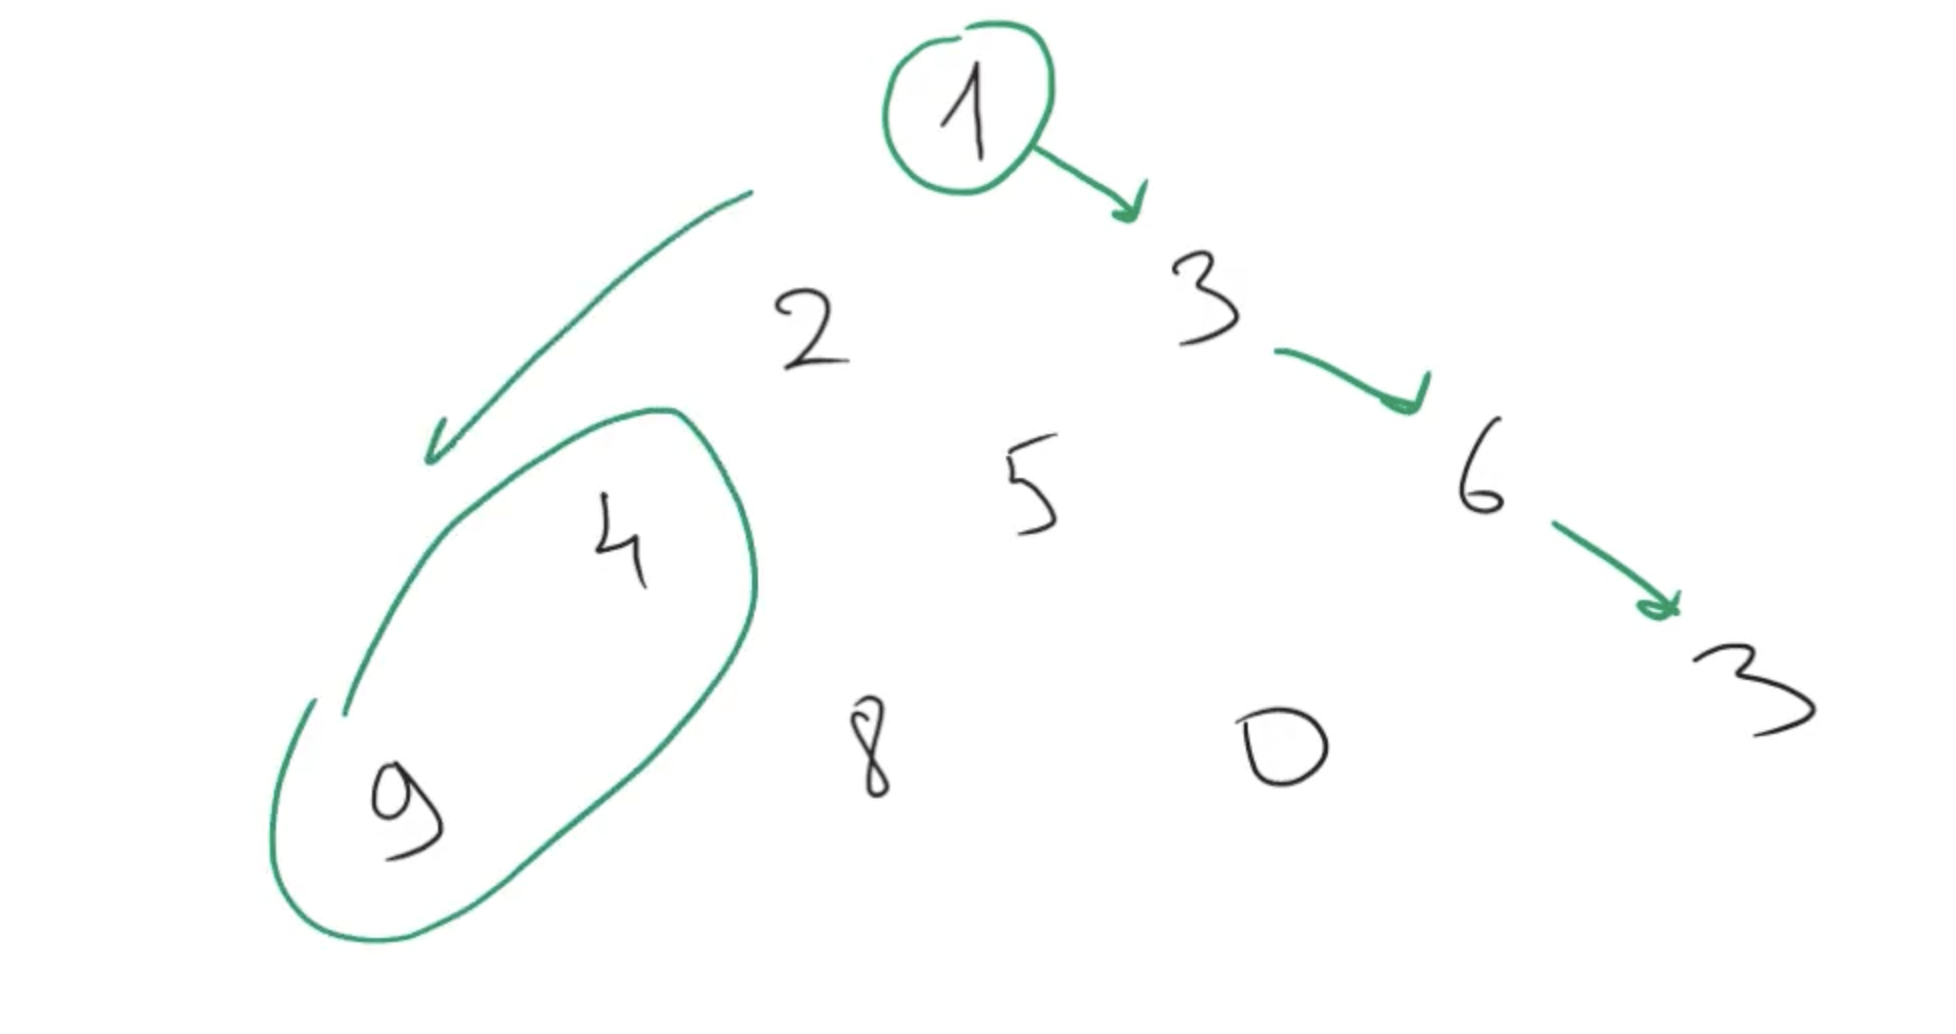 1
2 3
4 5 6
9 8 0 3